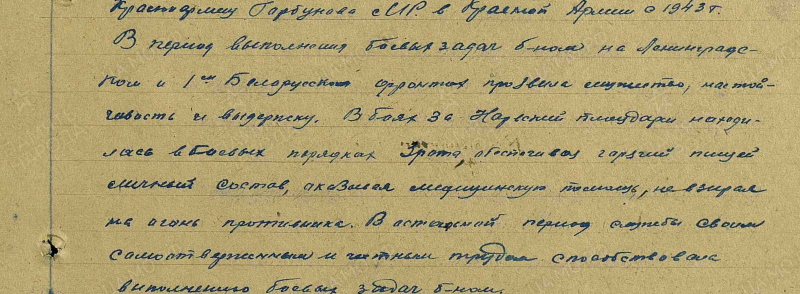 Красноармеец Горбунова М.Р. в Красной Армии с 1943 г.
В период выполнения боевых задач б-ном на Ленинградс-
ком и 1ом Белорусском фронтах проявила мужество, настой-
чивость и выдержку. В боях за Наревский плацдарм находи-
лась в боевых порядках 3 роты, обеспечивая горячей пищей
личный состав, оказывая медицинскую помощь, не взирая
на огонь противника. В остальной период службы своим
самоотверженным и честным трудом способствовала
выполнению боевых задач б-ном.